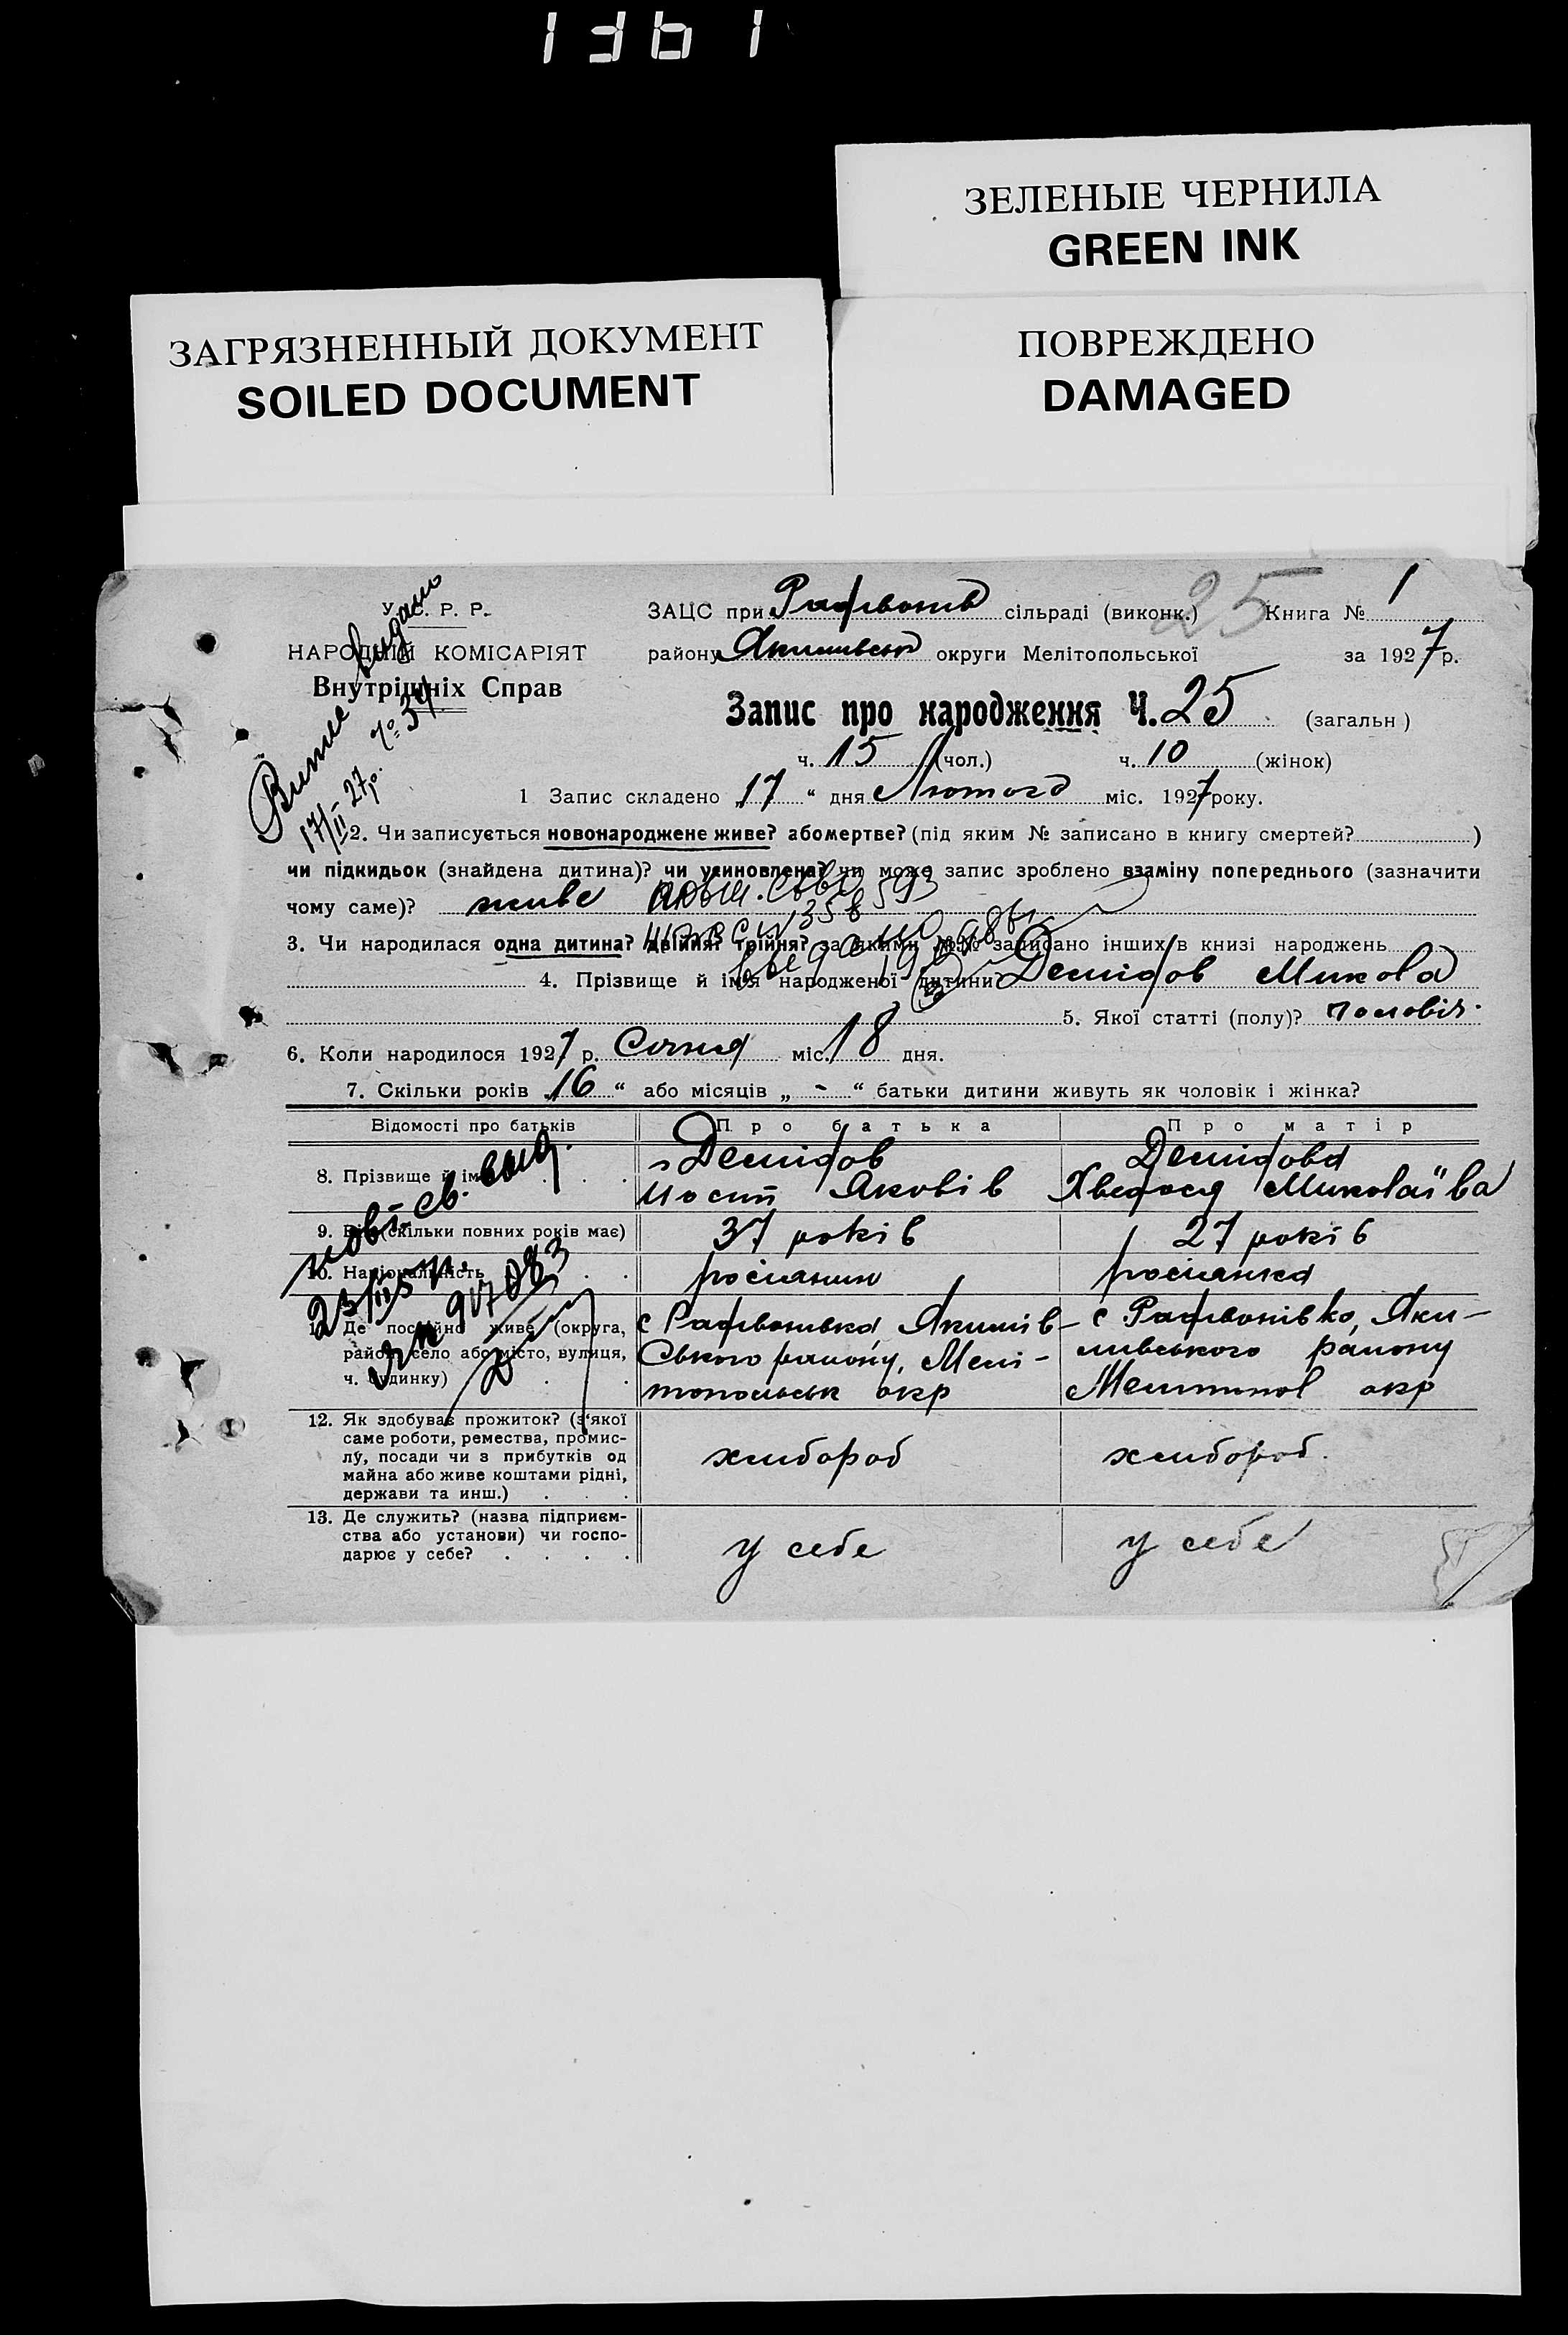 1361
ЗЕЛЕНЫЕ ЧЕРНИЛА
GREEN INK
ЗАГРЯЗНЕННЫЙ ДОКУМЕНТ
SOILED DOCUMENT
ПОВРЕЖДЕНО
DAMAGED
У. С. Р. Р.
НАРОДНІЙ КОМІСАРІЯТ
Внутрішніх Справ
Витяг видано
17/II 27р. № 34
ЗАЦС при сільраді (виконк.) 25 Книга № 1
району Якимівськ округи Мелітопольської за 1927 р.
Запис про народження Ч. 25 (загальн)
ч. 15 (чол.) ч. 10 (жінок)
1 Запис складено „17“ дня Лютого міс. 1927 року.
2. Чи записується новонароджене живе? або мертве? (під яким № записано в книгу смертей? )
чи підкидьок (знайдена дитина)? чи усиновлена? чи може запис зроблено взаміну попереднього (зазначити
чому саме)? живе
3. Чи народилася одна дитина? двійня? трійня? за якими №№ записано інших в книзі народжень
4. Прізвище й ім'я народженої дитини Демідов Микола
5. Якої статті (полу)? чоловіч.
6. Коли народилося 1927 р. Січня міс. 18 дня.
7. Скільки років „16“ або місяців „-“ батьки дитини живуть як чоловік і жінка?
Відомості про батьків Про батька Про матір
8. Прізвище й ім'я Демідов Демідова
Иосип Яковів Хведося Миколаївa
9. Вік (скільки повних років має) 37 років 27 років
10. Національність росіянин росіянка
11. Де постійно живе (округа, Якимів-
район, село або місто, вулиця, ського району, Мелі-
ч. будинку) топольськ окр
Яки-
мивського району
Мелитопол окр
12. Як здобуває прожиток? (з'якої
саме роботи, ремества, промис-
лу, посади чи з прибутків од
майна або живе коштами рідні,
держави та инш.) хлібороб хлібороб.
13. Де служить? (назва підприєм-
ства або установи) чи госпо-
дарює у себе? у себе у себе